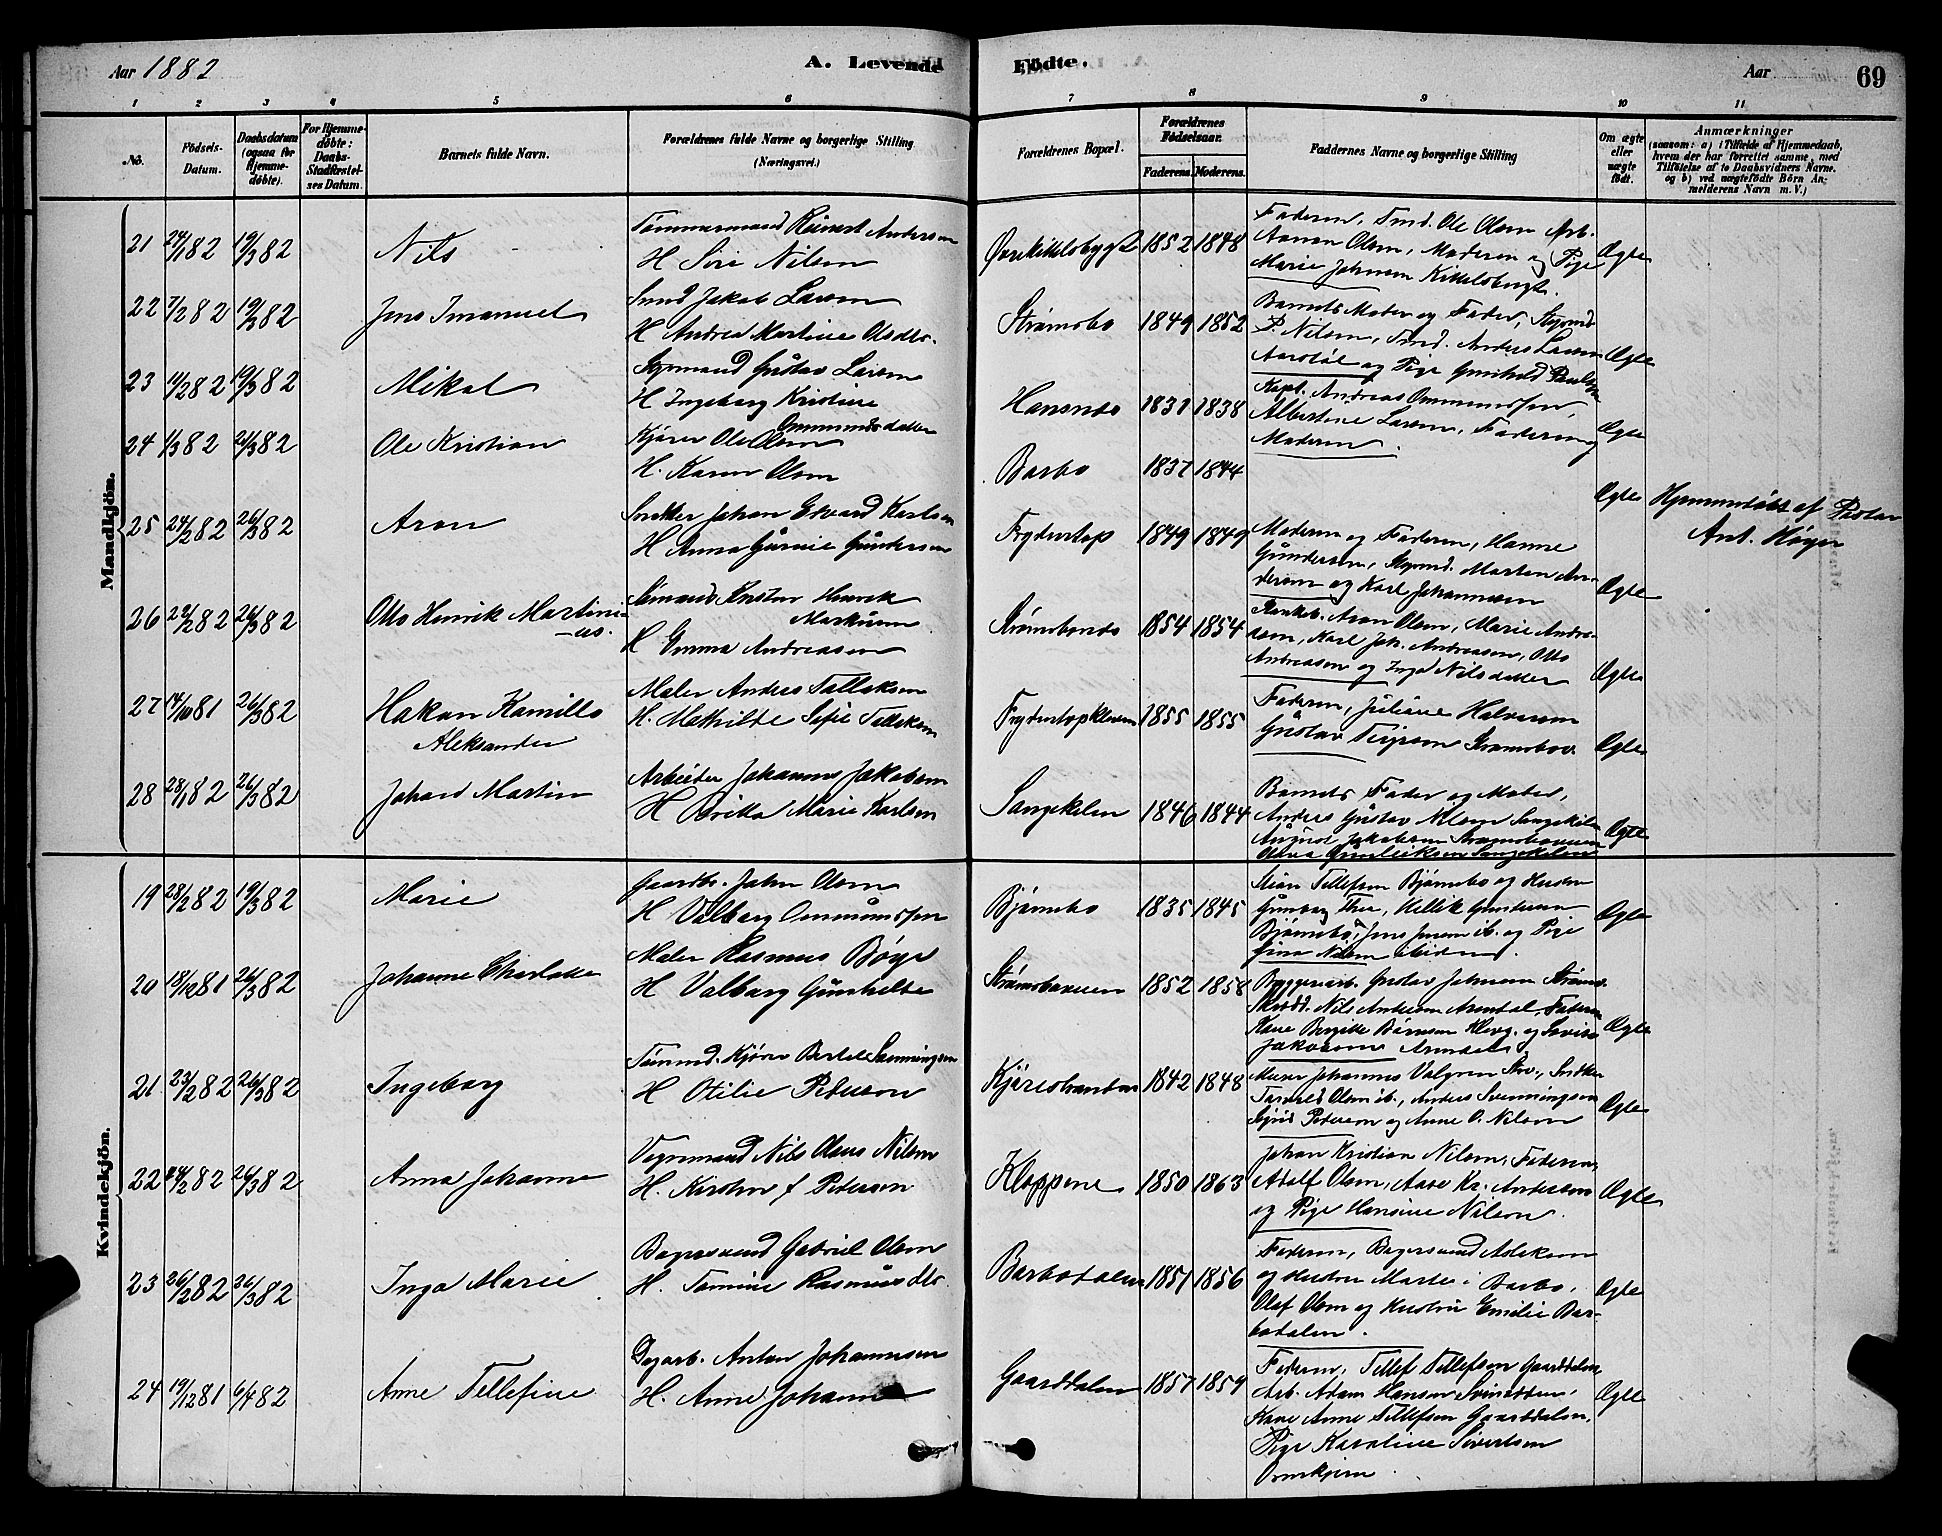 Aar 1882
A. Levende Födte.
Aar
69
1 2 3 4 5 6 7 8 9 10 11
No.
Födsels-
Datum.
Daabsdatum
(ogsaa for
Hjemme-
döbte).
For Hjemme-
döbte:
Daabs-
Stadfæstel-
ses Datum.
Barnets fulde Navn.
Forældrenes fulde Navne og borgerlige Stilling
(Næringsvei.)
Forældrenes Bopæl.
Forældrenes
Födselsaar.
Faderens. Moderens.
Faddernes Navne og borgerlige Stilling
Om ægte
eller
uægte
födt.
Anmærkninger
(saasom: a) i Tilfælde af Hjemmedaab,
hvem der har forrettet samme, med
Tilföielse af to Daabsvidners Navne.
og b) ved uægtefödte Börn An-
melderens Navn m. V.)
Mandkjön.
21 24/1 82 19/3 82 Nils
Tømmermand Reinert Andersen
H Siri Nilsen
1852 1848
Faderen, Tmd. Ole Olsen Arb.
Aanon Olsen, Moderen og Pige
Marie Johnsen Kittelsbugt.
Ægte
22 7/2 82 19/3 82 Jens Imanuel
Smd Jakob Larsen
H Andrea Martine Olsdtr.
Strømsbo 1849 1852
Barnets Moder og Fader, Styrmd
P. Nilsen, Tmd. Anders Larsen
og Pige Gunhild Paulsen
Ægte
23 11/2 82 19/3 82 Mikal
Styrmand Gustav Larsen
H Ingeborg Kristine
Ommundsdatter
Hansnes 1831 1838
Kapt. Andreas Ommundsen,
Albertine Larsen, Faderen og
Moderen.
Ægte
24 1/3 82 26/3 82 Ole Kristian
Kjører Ole Olsen
H. Karen Olsen
Barbo 1837 1844
Ægte
Hjemmedøbt af
Ant. Høyer
25 24/2 82 26/3 82 Aron
Snekker Johan Edvard Karlsen
H Anna Gurine Gundersen
Frydentop 1849 1849
Moderen og Faderen, Hanne
Gundersen, Styrmd. Morten An-
dersen og Karl Johannesen
Ægte
26 22/2 82 26/3 82 Otto Henrik Martini-
us.
Sømand Kristen Henrik
Markusen
H Emma Andreasen
Strømsbones 1854 1854
Aron Olsen, Marie Andrea-
sen, Karl Joh. Andreasen, Otto
Andreasen og Inga Nilsdatter
Ægte
27 14/10 81 26/3 82 Hakan Kamillo
Aleksander
Maler Anders Tallaksen
H. Mathilde Sofie Tallaksen
Frydentopkleven 1855 1855
Faderen, Juliane Halvorsen
Gustav Terjesen Strømsbov
Ægte
28 28/1 82 26/3 82 Johan Martin
Arbeider Johannes Jakobsen
H Marie Karlsen
Sangekilen 1846 1844
Barnets Fader og Moder,
Anders Gustav Nilsen Sangekilen
August Jakobsen Strømsboveien
Ægte
Kvindekjön.
19 28/2 82 19/3 82 Marie
Gaardbr. John Olsen
H Valborg Ommundsen
Bjørnebo 1835 1845
Stian Tellefsen Bjørnebo og Hustru
Gunborg Gundersen
Bjørnebo, Jens Jensen ib. og Pige
Gina Nilsen ibidem.
Ægte
20 18/10 81 26/3 82 Johanne Charlotte
Maler Rasmus Bøye
H Valborg Gunhilde
Strømsboveien 1852 1858
Byggearb. Gustav Johnsen Strøms.
Skrædd. Nils Andersen Arendal, Faderen
Kone Birgitte Børnsen Klevg. og Lovise
Jakobsen Arendal
Ægte
21 23/2 82 26/3 82 Ingeborg
Tømmd. Kjøren Bertel Svenningsen
H Otilie Pedersen
Kjørestranden 1842 1848
Murer Johannes Valgren Stro., Snekker
Tarald Olsen ib., Anders Svenningsen
Sigrid Pedersen og Anne O. Nilsen
Ægte
22 24/2 82 26/3 82 Anna Johanne
Vognmand Nils Olaus Nilsen
H. Kirsten f Pedersen
Kloppene 1850 1863
Johan Kristian Nilsen, Faderen,
Adolf Olsen, Aase Kr. Andersen
og Pige Hansine Nilsen.
Ægte
23 26/2 82 26/3 82 Inga Marie
Bagersvend Gabriel Olsen
H. Tomine Rasmusdtr.
Barbodalen 1851 1856
Faderen, Bagersvend Aslaksen
og Hustru Marte i Barbo,
Olaf Olsen og Hustru Emilie Bar-
bodalen.
Ægte
24 19/12 81 6/4 82 Anne Tellefine
Dagarb. Anton Johannsen
H. Anne Johanne
Gaarddalen 1857 1859
Faderen, Tellef Tellefsen Gaarddalen
Arb. Adam Hansen Svinodden,
Kone Anne Tellefsen Gaarddalen,
Pige Karoline Sivertsen
Ægte